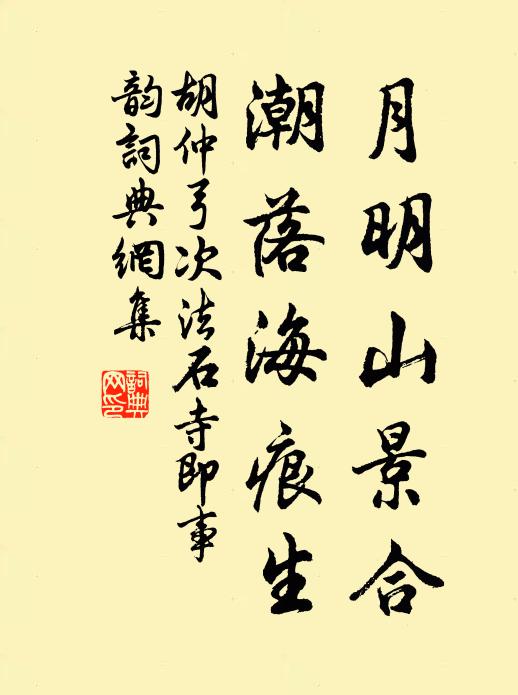 月明山景合
潮落海痕生
胡仲弓次法石寺即事
韵詞典網集
詞典网印